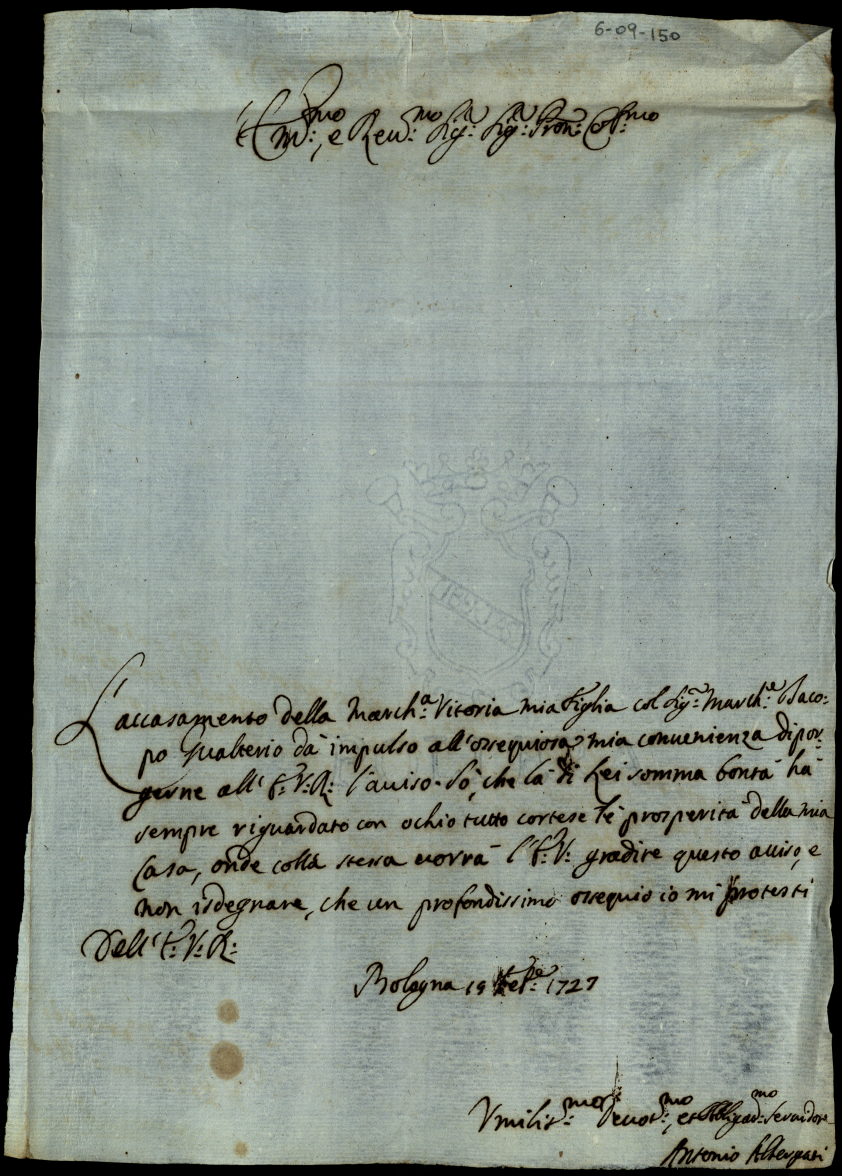 6-09-150
Em.mo:, e Reu.mo: Sig.r: Sig.r: Pron: Col.mo:
L'accasamento della March.a: Vitoria mia figlia col Sig.r: March.e: Jaco=
po Gualterio dà impulso all'ossequiosa mia conuenienza di por=
gerne all'E: V: R: l'auiso. Sò, che la di Lei somma bontà hà
sempre riguardato con ochio tutto cortese le prosperità della mia
Casa, onde colla stessa uorrà l'E: V: gradire questo auiso, e
non isdegnare, che un profondissimo ossequio io mi protesti
Dell'E: V: R:
Bologna 19 1727
Umilis.mo: Deuot.mo:, et Obligat.mo: Seruidore
Antonio